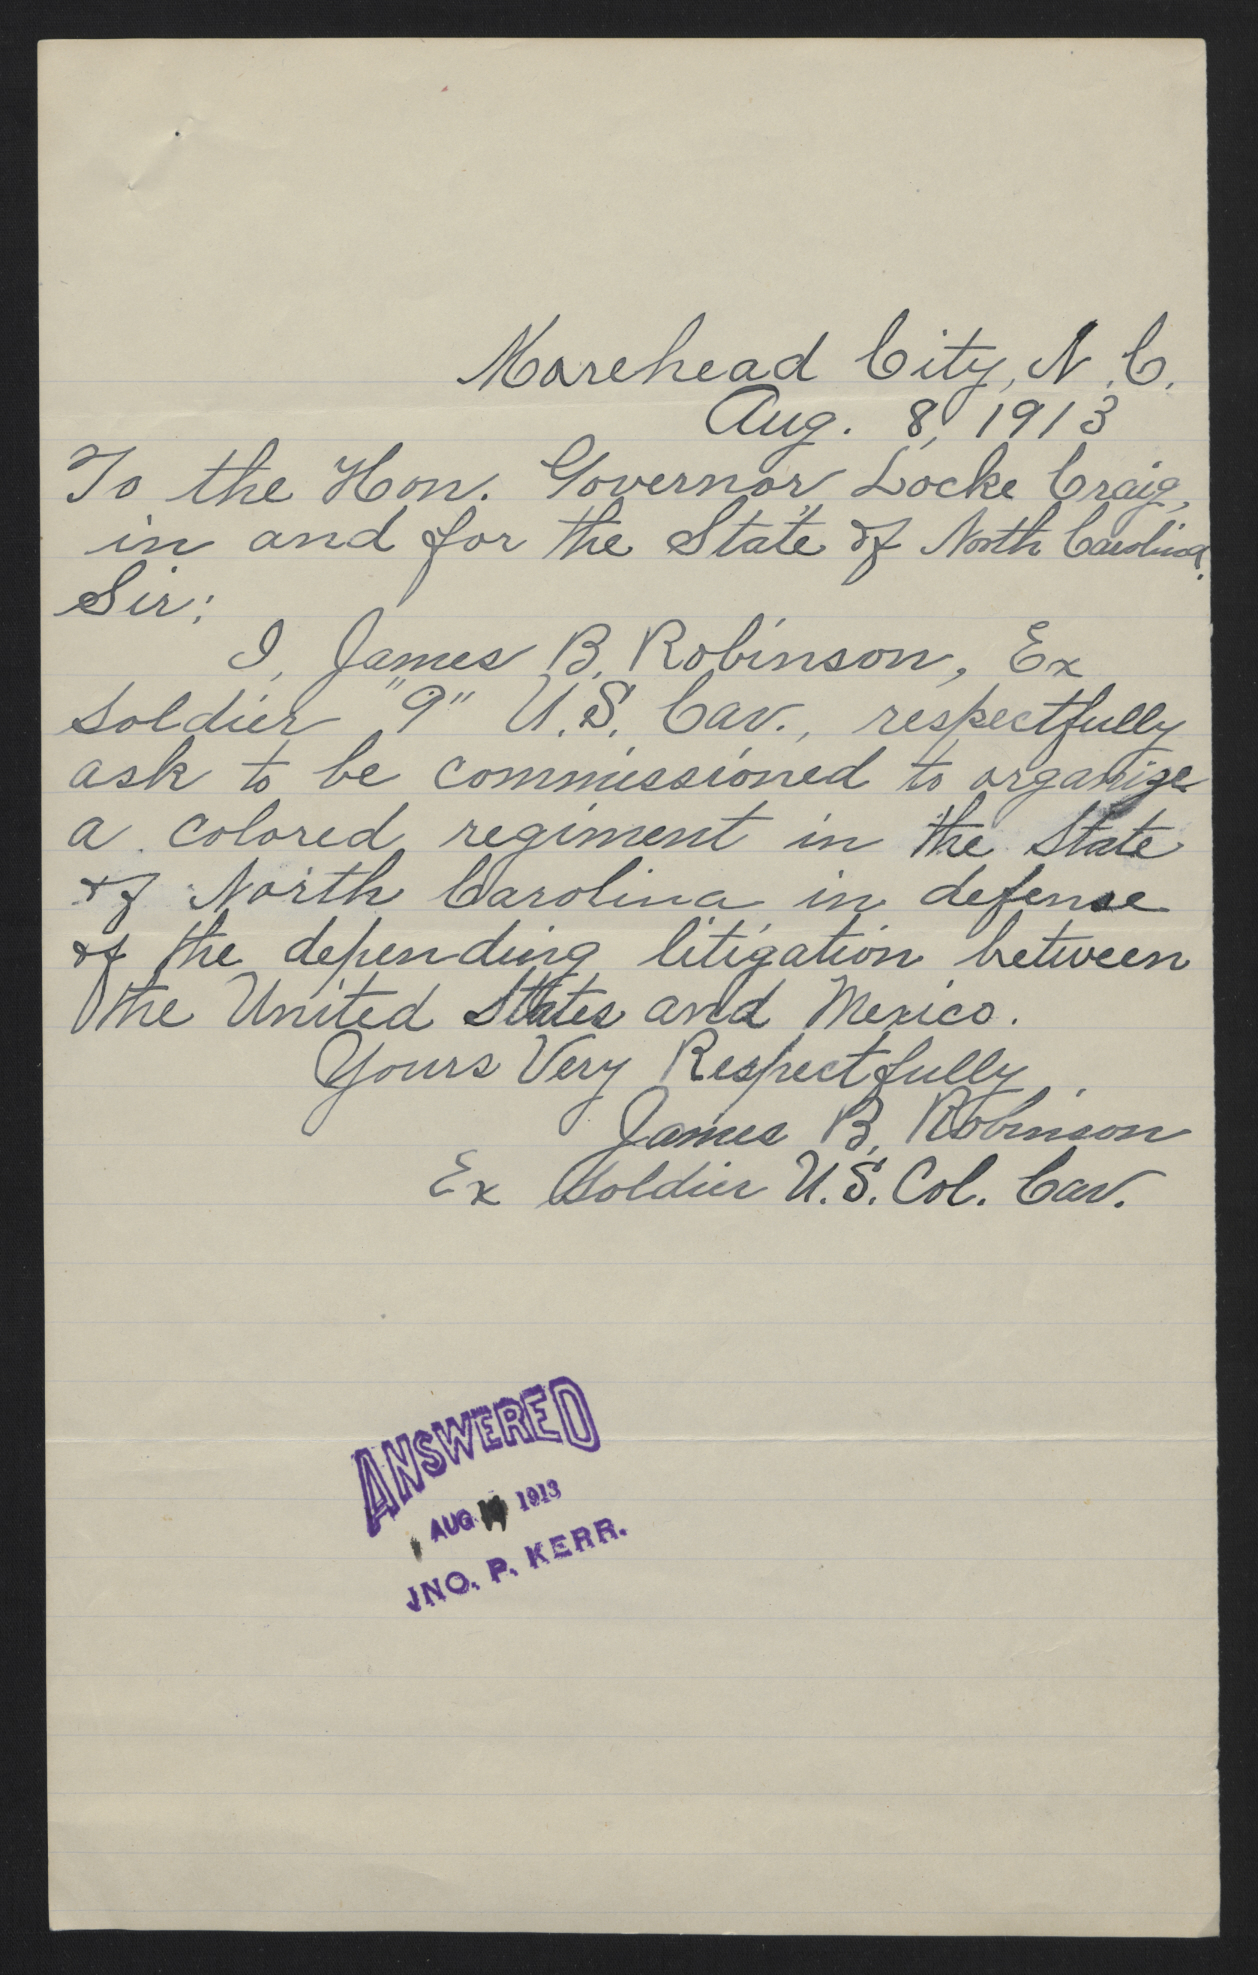 Morehead City, N.C.
Aug. 8, 1913
To the Hon. Governor Locke Craig,
in and for the State of North Carolina.
Sir:
I, James B. Robinson, Ex
soldier "9" U.S. Cav., respectfully
ask to be commissioned to organize
a colored regiment in the State
of North Carolina in defense
of the depending litigation between
the United States and Mexico.
Yours Very Respectfully,
James B. Robinson
Ex Soldier U.S. Col. Cav.
ANSWERED
AUG 1913
JNO. P. KERR.